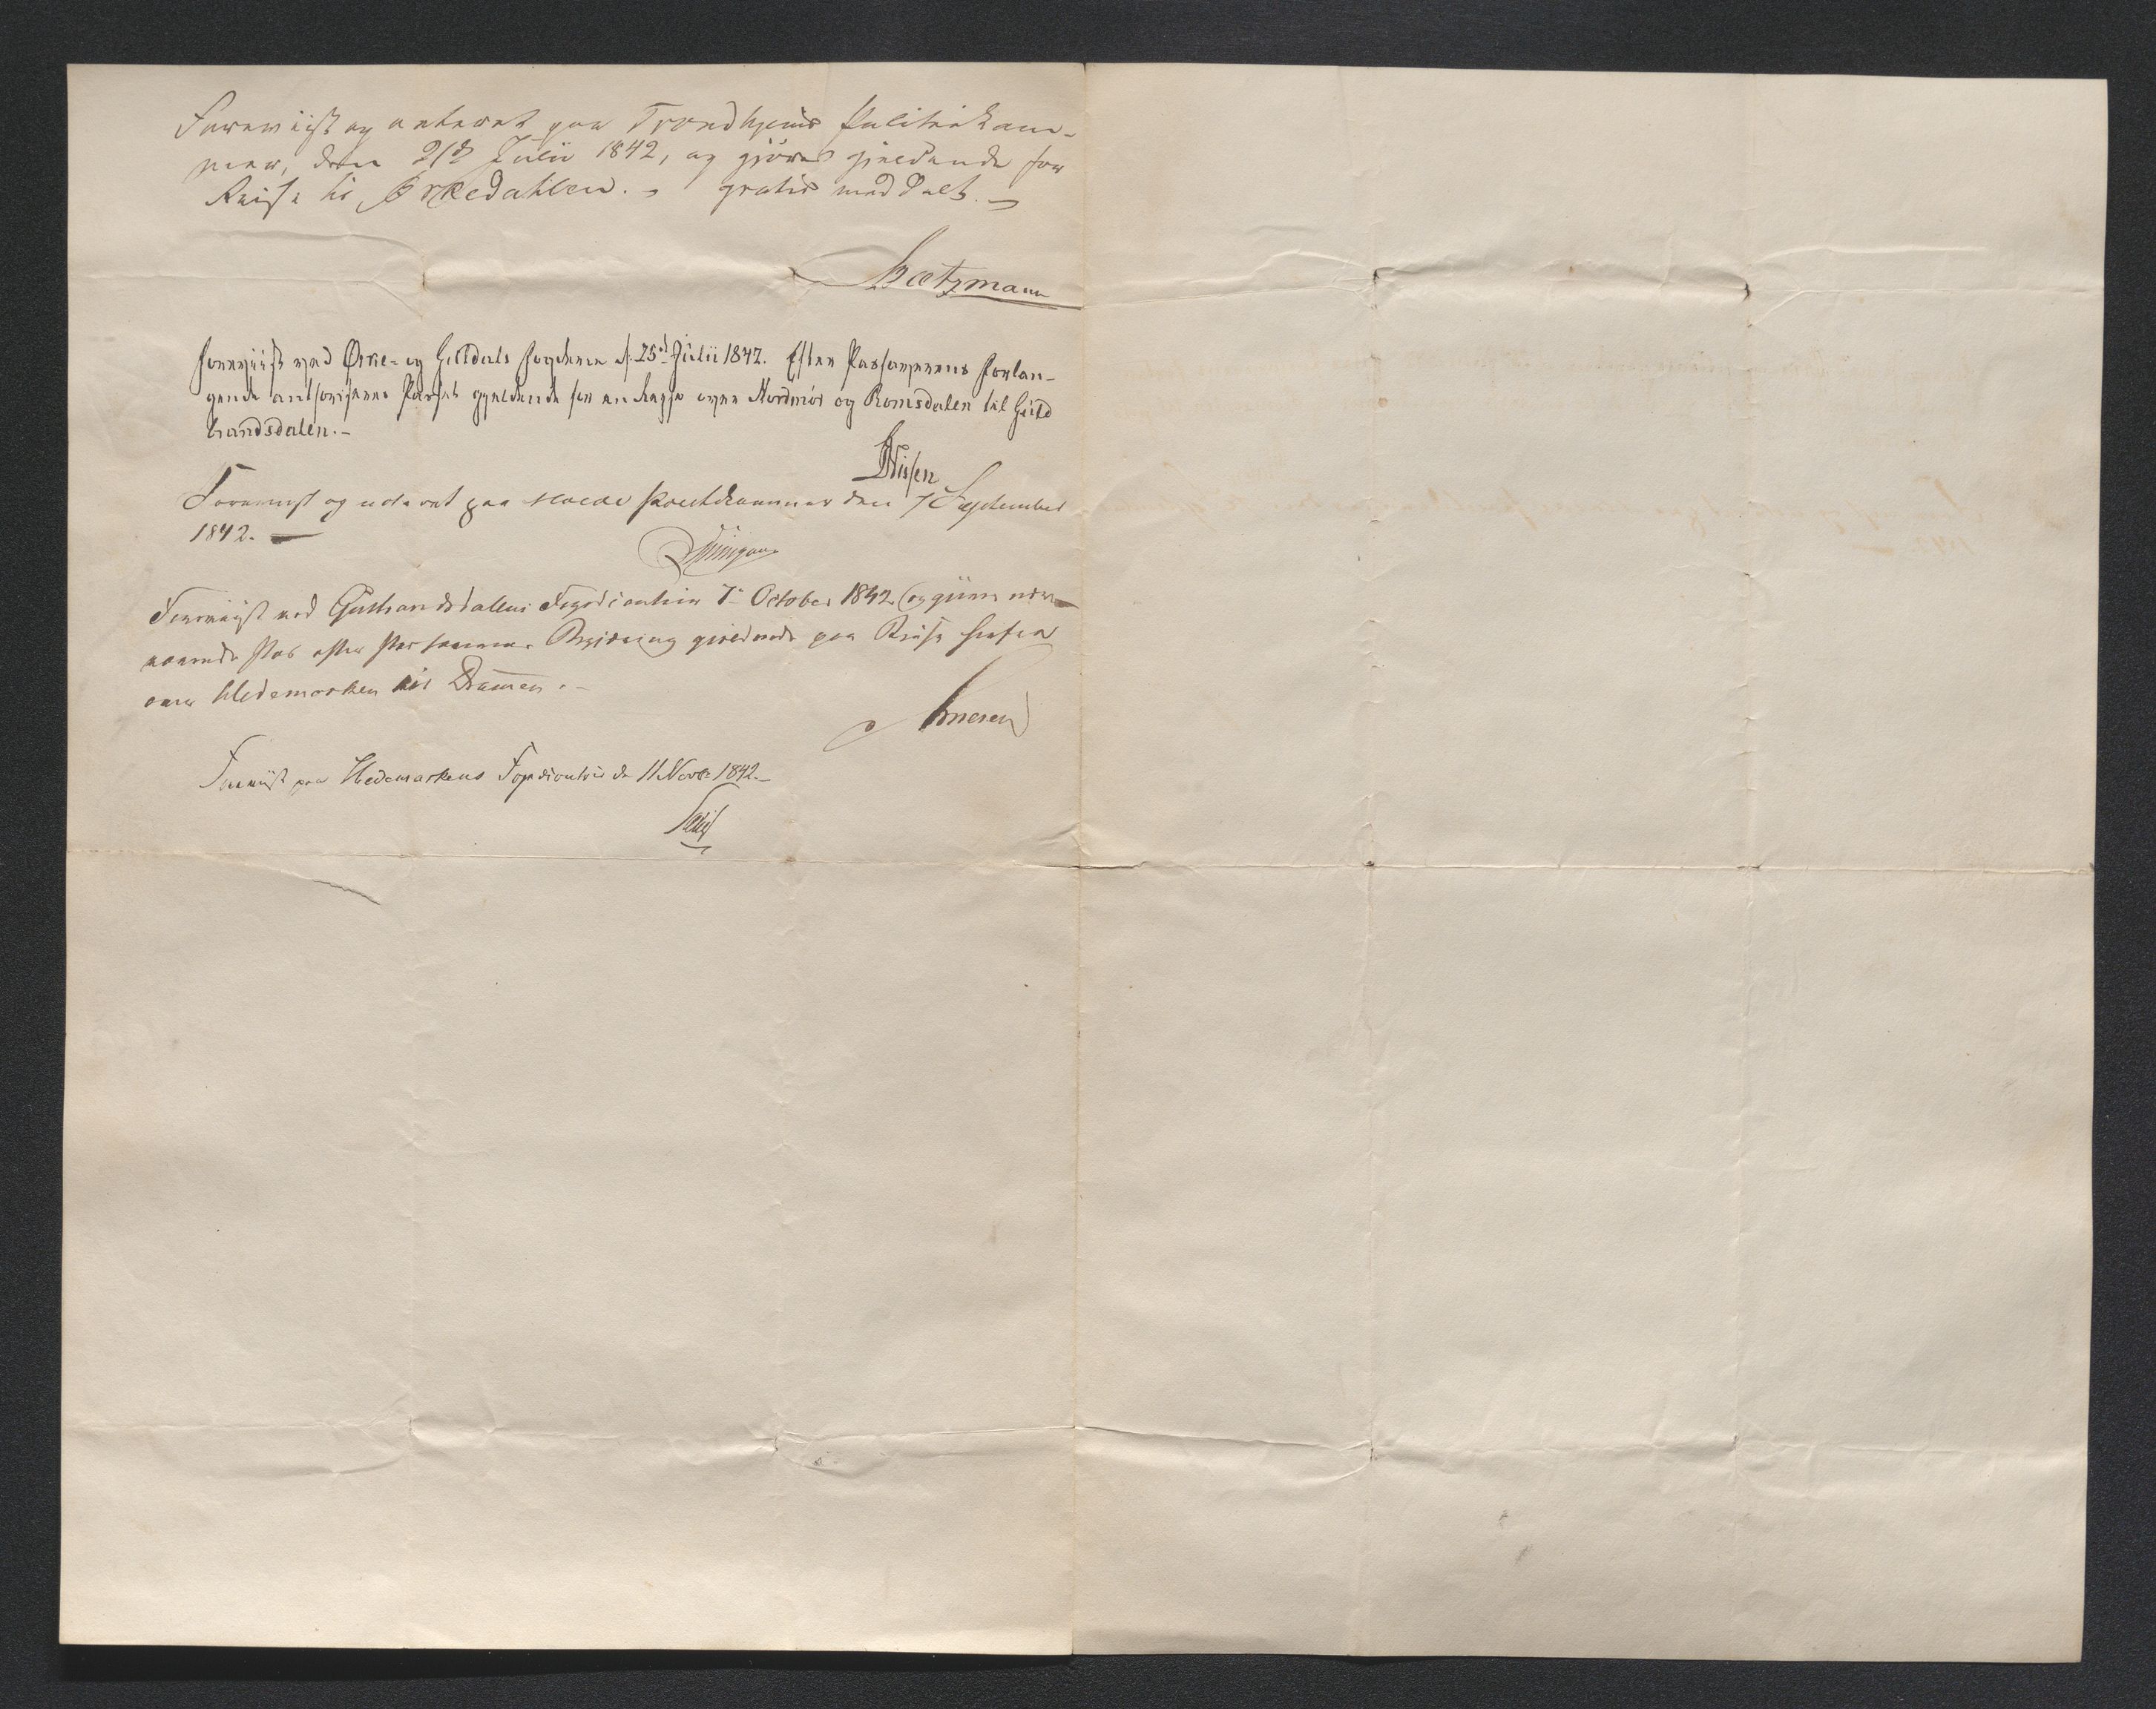 Foreviist og noteret paa Trondhjems Politiekam-
mer, den 21de Julii 1842, og gjöres gjeldende for
Reise til Örkedahlen. – gratis meddelt. –
Foreviist ved Örke- og Guldals Fogderie d. 25de Julii 1842. Efter Passagerens Forlan-
gende authoriseres Passet gjeldende for en Reise over Nordmör og Romsdalen til Guld
brandsdalen. –
Nissen
Foreviist og noteret paa Molde Politikammer den 7 September
1842. –
Foreviist ved Gulbrandsdalens Fogdicontoir 7de October 1842 og gjöres
Pas efter Passagerens Begjæring gieldende paa Reise herfra
over Hedemarken til Drammen. –
Foreviist paa Hedemarkens Fogdicontoir d. 11 Novbr 1842. –